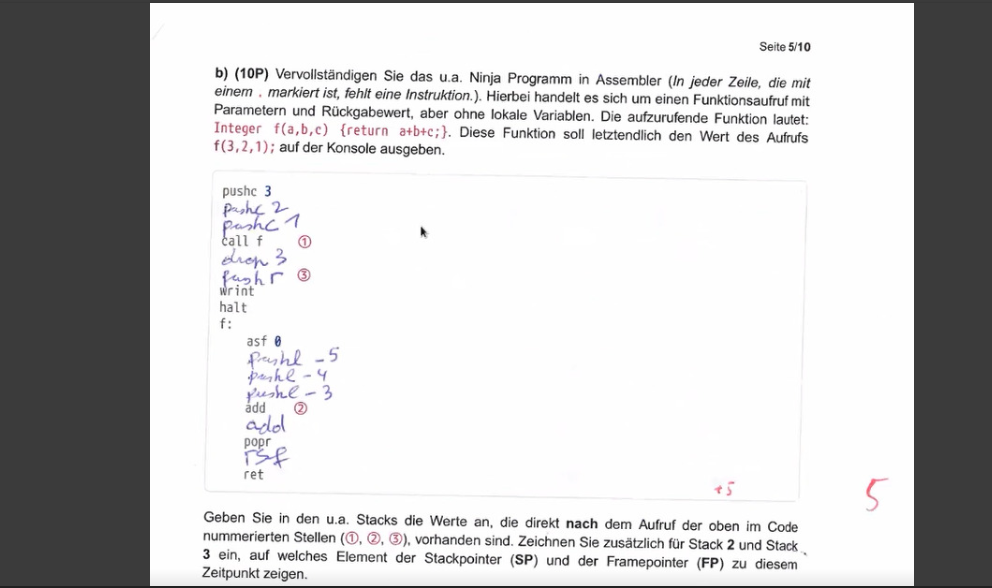 Seite 5/10
b) (10P) Vervollständigen Sie das u.a. Ninja Programm in Assembler (In jeder Zeile, die mit
einem . markiert ist, fehlt eine Instruktion.). Hierbei handelt es sich um einen Funktionsaufruf mit
Parametern und Rückgabewert, aber ohne lokale Variablen. Die aufzurufende Funktion lautet:
Integer f(a,b,c) {return a+b+c;}. Diese Funktion soll letztendlich den Wert des Aufrufs
f(3,2,1); auf der Konsole ausgeben.
pushc 3
pushc 2
pushc 1
call f ①
drop 3
pushr ③
wrint
halt
f:
asf 0
pushl -5
pushl -4
pushl -3
add ②
add
popr
rsf
ret
+5
5
Geben Sie in den u.a. Stacks die Werte an, die direkt nach dem Aufruf der oben im Code
nummerierten Stellen (①, ②, ③), vorhanden sind. Zeichnen Sie zusätzlich für Stack 2 und Stack
3 ein, auf welches Element der Stackpointer (SP) und der Framepointer (FP) zu diesem
Zeitpunkt zeigen.